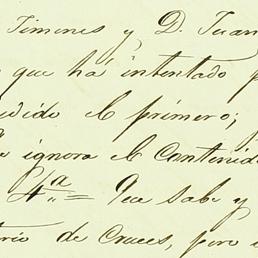 Timenes y D. Juan
que há intentado p
dido el primero;
ignora el Contenid
4ª = Que sabe y
trio de Cruces, pero